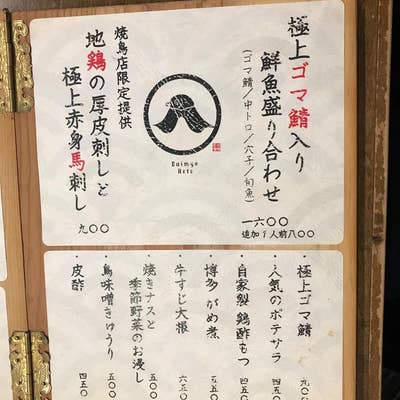 極上ゴマ鯖入り
鮮魚盛り合わせ
(ゴマ鯖/中トロ/穴子/旬魚)
一六〇〇
追加1人前八〇〇
八
Daimyo
Hato
焼鳥店限定提供
地鶏の厚皮刺しと
極上赤身馬刺し
九〇〇
・極上ゴマ鯖 九〇〇
・人気のポテサラ 四五〇
・自家製鶏酢もつ 四五〇
・博多がめ煮 五五〇
・牛すじ大根 六五〇
・焼きナスと
季節野菜のお浸し 五〇〇
・鳥味噌きゅうり 五〇〇
・皮酢 四五〇